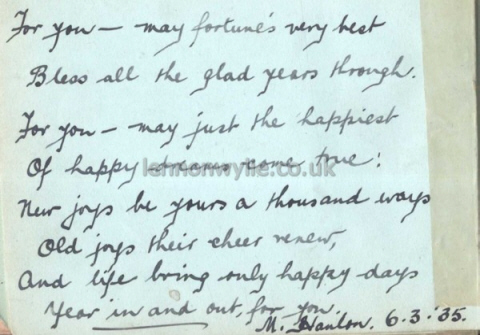 For you — may fortune's very best
Bless all the glad years through.
For you — may just the happiest
Of happy dreams come true!
lennonwylie.co.uk
New joys be yours a thousand ways
Old joys their cheer renew,
And life bring only happy days
Year in and out, for you.
M. Hanlon. 6.3.'35.